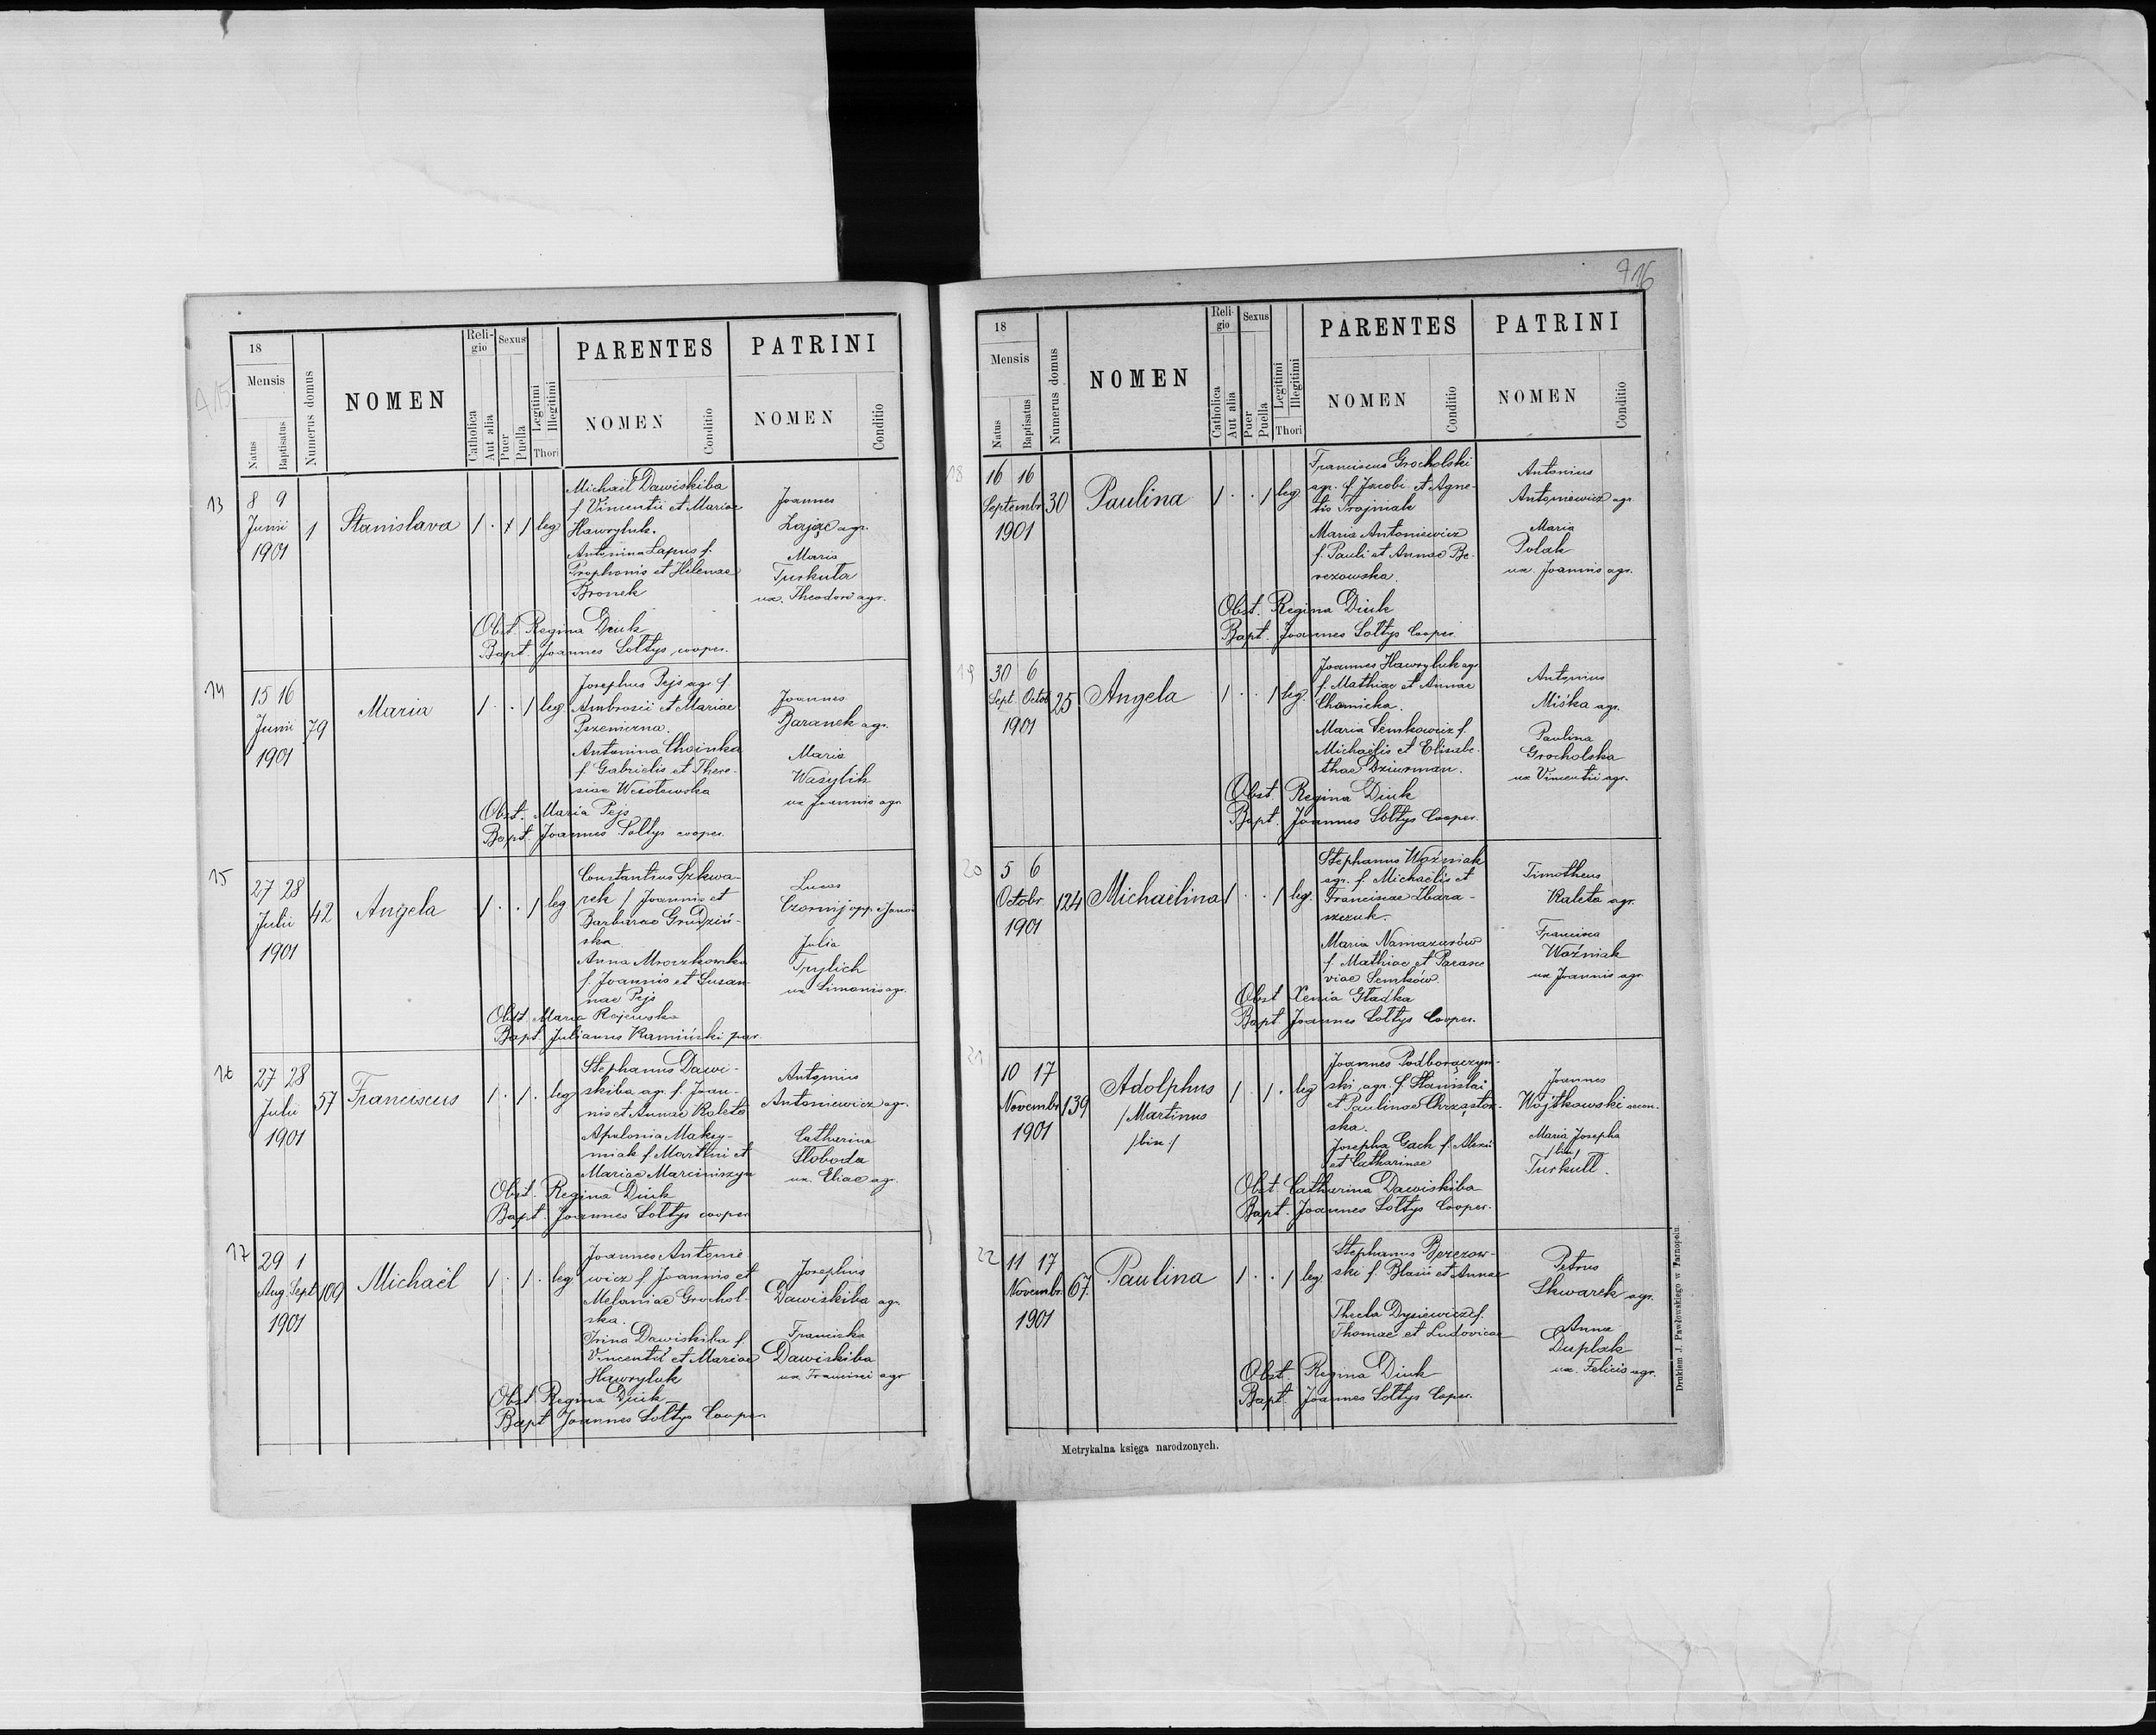 18
Mensis
Natus
Baptisatus
Numerus domus
NOMEN
Reli-
gio
Catholica
Aut alia
Sexus
Puer
Puella
Legitimi
Illegitimi
Thori
PARENTES
NOMEN
Conditio
PATRINI
NOMEN
Conditio
13
8 9
Junii
1901
1
Stanislava
1 . x 1 leg
Michael Dawiskiba
f Vincentii et Mariae
Hawryluk.
Antonina Lapus f.
Prophonis et Helenae
Bronek
Joannes
Zając agr.
Maria
Turkuta
ux. Theodori agr.
Obst. Regina Diuk
Bapt. Joannes Soltys cooper.
14
15 16
Junii
1901
79
Maria
1 . . 1 leg
Josephus Pejs agr f
Ambrosii et Mariae
Pszeniczna.
Antonina Choinka
f. Gabrielis et There-
siae Wesołowska
Joannes
Baranek agr.
Maria
Wasylik
ux Joannis agr
Obst. Maria Pejs
Bapt. Joannes Soltys cooper.
15
27 28
Julii
1901
42
Angela
1 . . 1 leg
Constantius Szkwa-
rek f Joannis et
Barbarae Grudziń-
ska
Anna Mroczkowska
f. Joannis et Susan-
nae Pejs
Lucas
Czornij
Julia
Trylich
ux Simonis agr.
Obst Maria Rajewska
Bapt. Julianus Kamiński par.
16
27 28
Julii
1901
57
Franciscus
1 . 1 . leg
Stephanus Dawi-
skiba agr. f. Joan-
nis et Annae Kaleta
Apolonia Maksy-
miak f Martini et
Mariae Marciniszyn
Antonius
Antoniewicz agr.
Catharina
Sloboda
ux. Eliae agr.
Obst. Regina Diuk
Bapt. Joannes Soltys cooper
17
29 1
Aug. Sept
1901
109
Michaël
1 . 1 . leg
Joannes Antonie
wicz f Joannis et
Melaniae Grochol-
ska.
Irina Dawiskiba f
Vincentii et Mariae
Hawryluk
Josephus
Dawiskiba agr.
Franciska
Dawiskiba
ux Francisci agr
Obst Regina Diuk
Bapt Joannes Soltys Cooper.
16
18
Mensis
Natus
Baptisatus
Numerus domus
NOMEN
Reli-
gio
Catholica
Aut alia
Sexus
Puer
Puella
Legitimi
Illegitimi
Thori
PARENTES
NOMEN
Conditio
PATRINI
NOMEN
Conditio
18
16 16
Septembr
1901
30
Paulina
1 . . 1 leg.
Franciscus Grocholski
agr. f. Jacobi et Agne-
tis Trojniak
Maria Antoniewicz
f. Pauli et Annae Be-
rezowska.
Antonius
Antoniewicz agr.
Maria
Polak
ux. Joannis agr.
Obst. Regina Diuk
Bapt. Joannes Soltys Cooper.
19
30 6
Sept. Octob
1901
25
Angela
1 . . 1 leg.
Joannes Hawryluk agr
f. Mathiae et Annae
Chomicka.
Maria Semkowicz f.
Michaëlis et Elisabe-
thae Dziurman.
Antonius
Miśka agr.
Paulina
Grocholska
ux Vincentii agr.
Obst. Regina Diuk
Bapt. Joannes Soltys Cooper.
20
5 6
Octobr
1901
124
Michaelina
1 . . 1 leg.
Stephanus Woźniak
agr. f. Michaëlis et
Franciscae Zbara-
szczuk.
Maria Namazurów
f. Mathiae et Parasce
viae Semków.
Timotheus
Kaleta agr.
Francisca
Woźniak
ux Joannis agr
Obst Xenia Gładka
Bapt. Joannes Soltys Cooper.
21
10 17
Novembr
1901
139
Adolphus
/Martinus
/bin:/
1 1 . leg
Joannes Podborączyn-
ski agr. f. Stanislai
et Paulinae Chrząstow-
ska.
Josepha Gach f. Alexii
et Catharinae
Joannes
Wojtkowski oecon.
Maria Josepha
/bin/
Turkull.
Obst. Catharina Dawiskiba
Bapt. Joannes Soltys Cooper.
22
11 17
Novembr.
1901
67
Paulina
1 . . 1 leg.
Stephanus Berezow-
ski f. Blasii et Annae
Thecla Drysiewicz f.
Thomae et Ludovicae
Petrus
Skwarek agr.
Anna
Duplak
ux. Felicis agr.
Obst. Regina Diuk
Bapt. Joannes Soltys Coper.
Metrykalna księga narodzonych.
Drukiem J. Pawłowskiego w Tarnopolu.